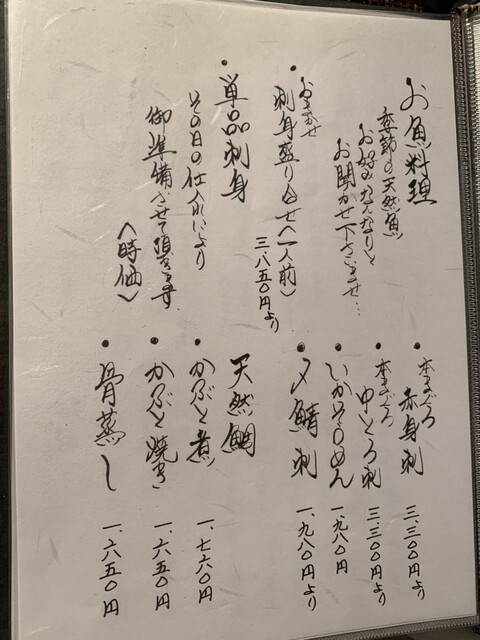 お魚料理
季節の天然魚
お好みなんなりと
お聞かせ下さいませ…
おまかせ
・刺身盛り合せ〈一人前〉
三、八五〇円より
・単品刺身
その日の仕入れにより
御準備させて頂きます
〈時価〉
・本まぐろ
赤身刺 三、三〇〇円より
・本まぐろ
中とろ刺 三、三〇〇円より
・いかそうめん 一、九八〇円
・〆鯖刺 一、九八〇円より
天然鯛
・かぶと煮 一、七六〇円
・かぶと焼き 一、六五〇円
・骨蒸し 一、六五〇円